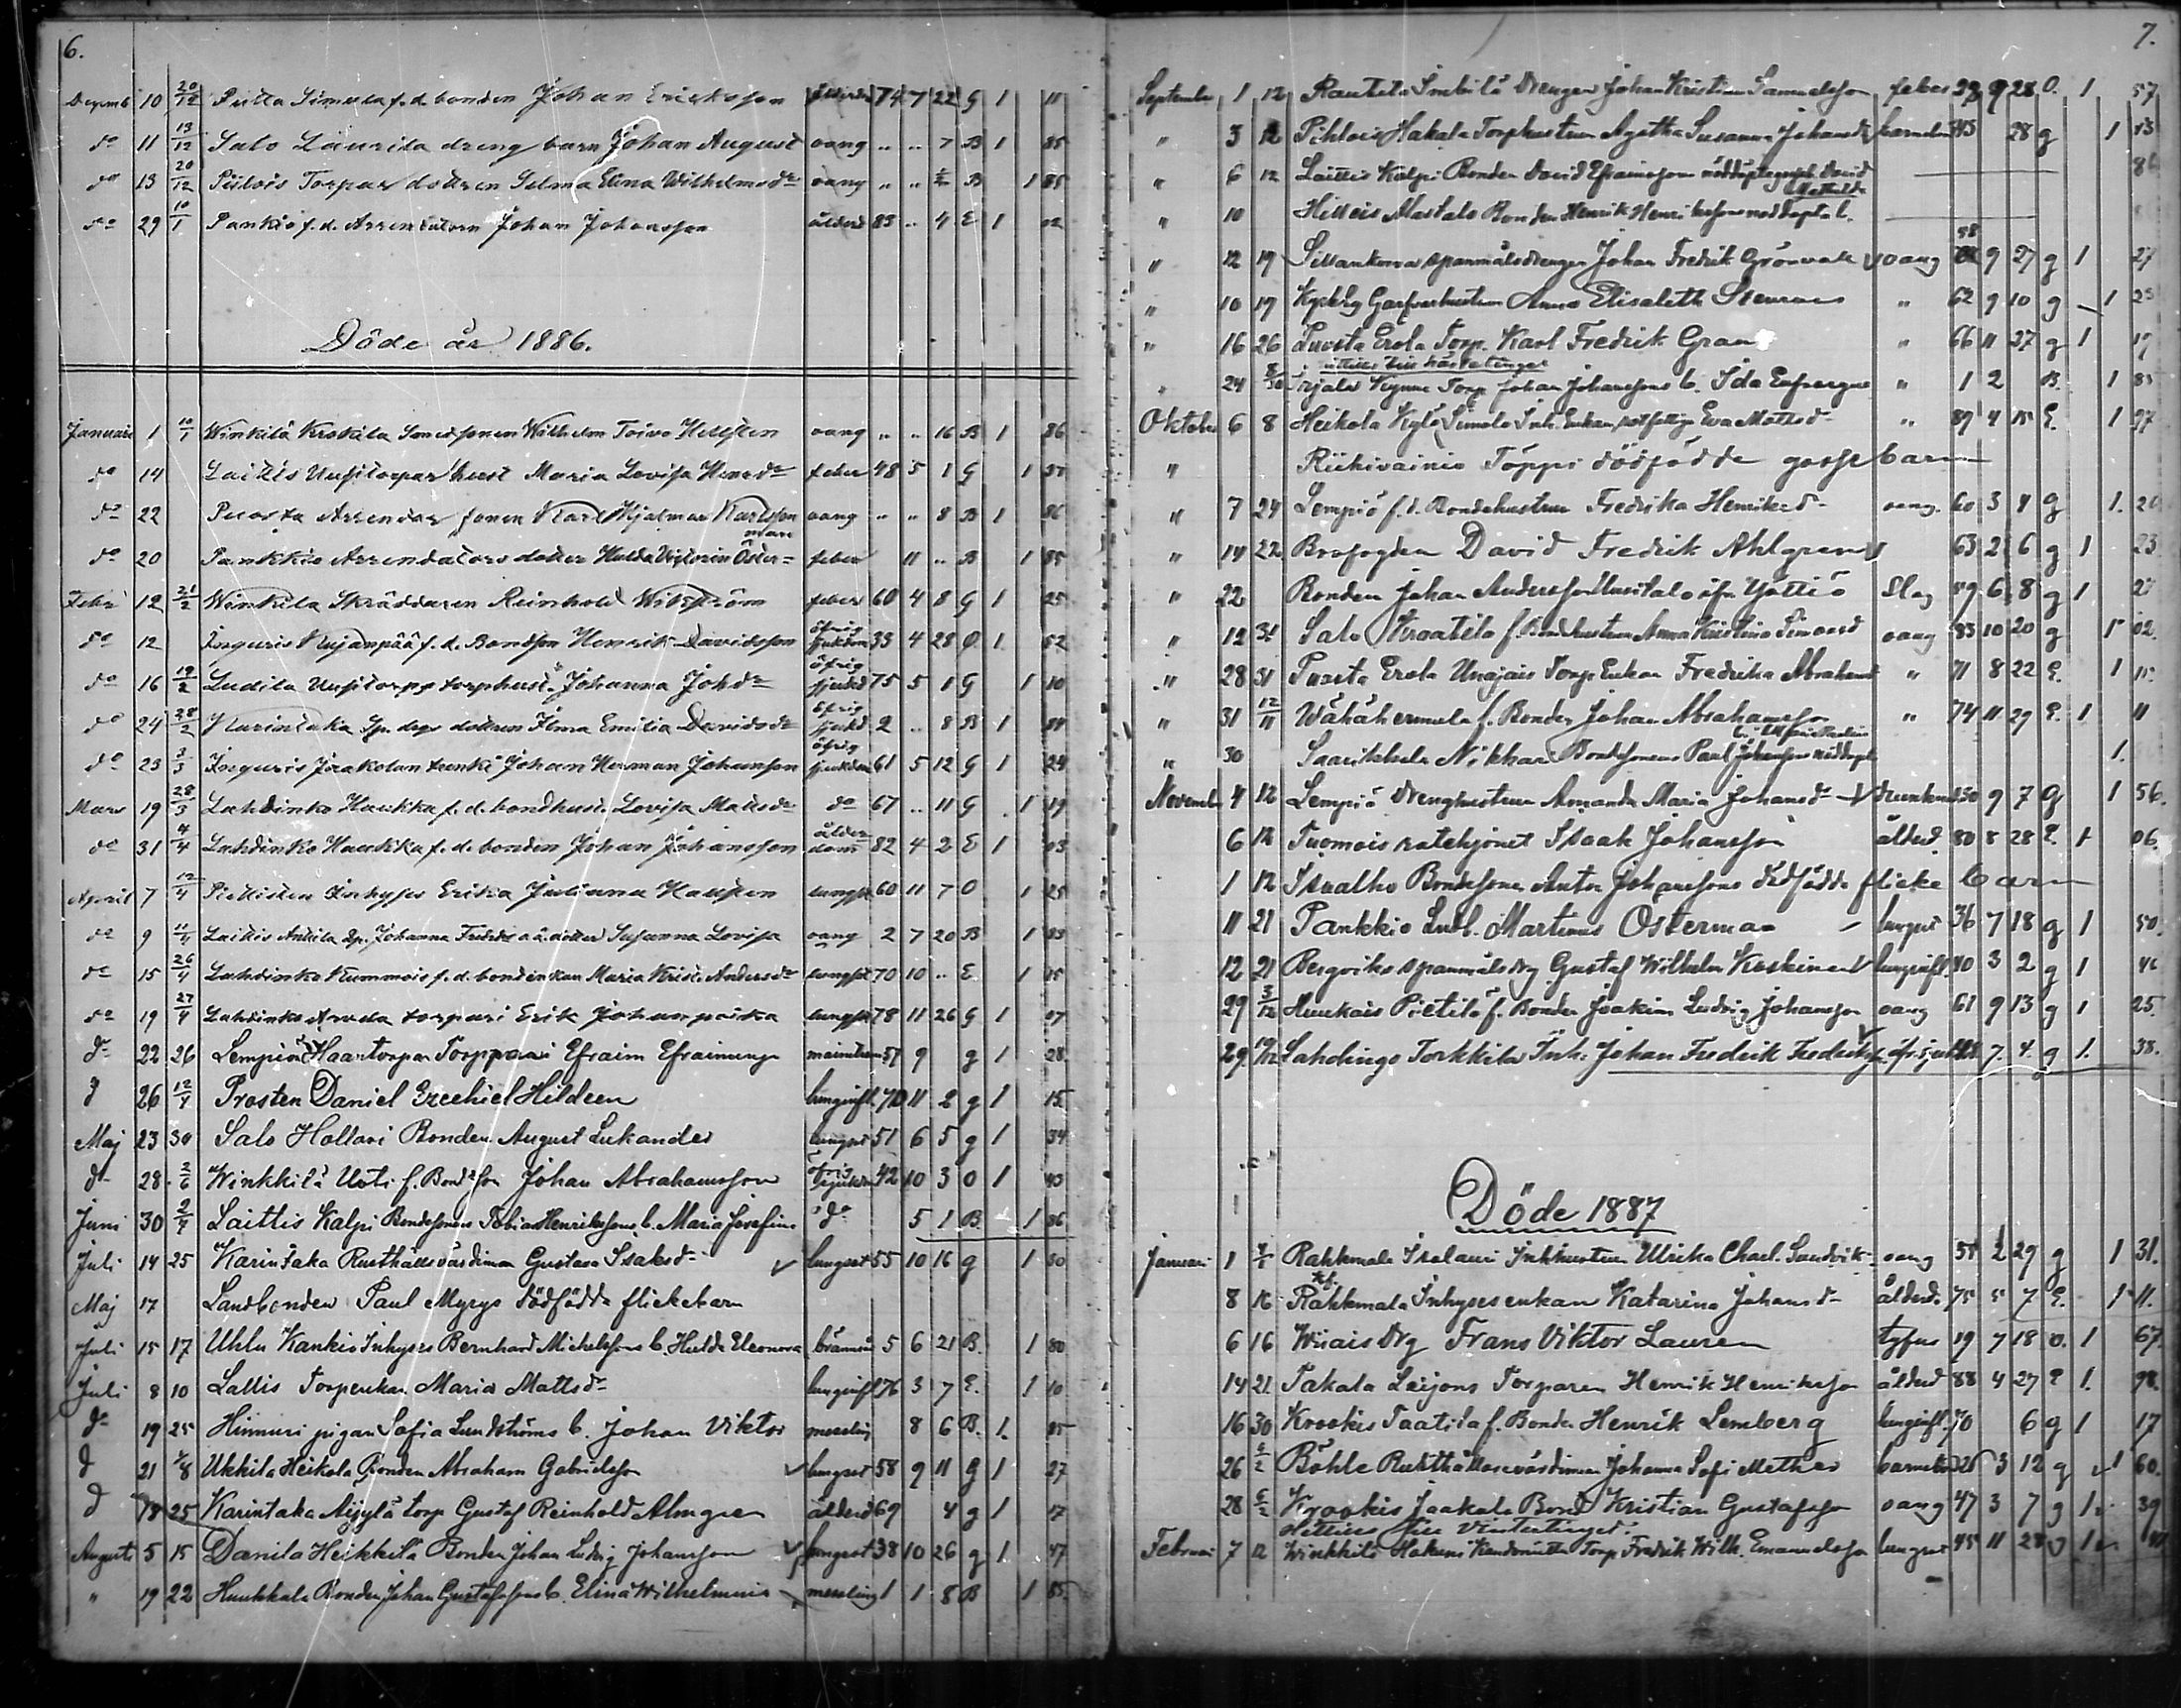 6.
Decemb 10 20/12 Simula f.d. bonden Johan Ericksson ålderd 74 7 22 G 1 11
do 11 13/12 Salo Laurila dreng barn Johan August oang " " 7 B 1 85
do 13 20/12 Piilois Torpar dottren Selma Elina Wilhelmsdr oang " " B 1 85
do 29 10/1 Pankio f.d. Arrendatorn Johan Johansson ålderd 83 " 4 E 1 02
Döde år 1886.
Januari 1 10/1 Winkilä Krokila Smedsonen Wilhelm Toivo Hellsten oang " " 16 B 1 86
do 14 Laitis Uusitorpar hust Maria Lovisa Henrdr feber 48 5 1 G 1
do 22 Puosta Arrendar sonen Karl Hjalmar Karlsson oang " " 8 B 1 86
do 20 Pankkio Arrendators dotter Hulda Victorin Öster= man feber 11 " B 1 85
Febr 12 21/2 Winkila Skräddaren Reinhold Wikström feber 60 4 8 G 1 25
do 12 Inguris Kujanpää f.d. Bondson Henrik Davidsson öfrig sjukdom 33 4 28 O 1 52
do 16 19/2 Ludila Uusitorpp torphust. Johanna Johdr öfrig sjukd 75 5 1 G 1 10
do 24 28/2 Karintaka Sp. drgs dottren Ilma Emilia Davidsdr öfrig sjukd 2 " 8 B 1 84
do 23 3/3 Inguris Jaakolan Johan Herman Johansson öfrig sjukdom 61 5 12 G 1 24
Mars 19 28/3 Lahdinko Haukka f.d. bondhust. Lovisa Mattsdr do 67 " 11 G 1 19
do 31 4/4 Lahdinko Haukka f.d. bonden Johan Johansson ålderdom 82 4 2 E 1 03
April 7 12/4 Inhyses Erika Juliana Hallsten lungsot 60 11 7 O 1 25
do 9 11/4 Laitis Anttila Johanna Fredrdr o.ä. dotter Susanna Lovisa oang 2 7 20 B 1 83
do 15 26/4 Lahdinko Kummois f.d. bondenkan Maria Krist. Andersdr lungsot 70 10 " E 1 15
do 19 27/4 Lahdinko torpari Erik Johanpoika lungsot 78 11 26 G 1 07
do 22 26 Lempiö Haantorpan Torppari Efraim Efraiminp 57 9 g 1 28
d 26 12/4 Prosten Daniel Ezechiel Hildeen lunginfl 70 11 2 g 1 15
Maj 23 30 Salo Hollari Bonden August Lukander lungsot 51 6 5 g 1 34
do 28 2/6 Winkkilä Uoti f. Bondeson Johan Abrahamsson öfrig sjukdom 42 10 3 O 1 43
Juni 30 2/7 Laittis Kalpi Bondsonens Tobias Henrikssons b. Maria Josefina do 5 1 B 1 86
Juli 14 25 Karintaka Rusthållsvärdinnan Gustava Isaksdr lungsot 55 10 16 g 1 30
Maj 17 Landbonden Paul Myrys dödfödda flickebarn
Juli 15 17 Uhlu Kankio Inhyses Bernhard Michelssons b. Hulda Eleonora 5 6 21 B. 1 80
Juli 8 10 Lallis Torpenkan Maria Mattsdr lunginfl 76 3 7 E. 1 10
do 19 25 Hinnuri pigan Sofia Lundströms b. Johan Viktor messling 8 6 B. 1. 85
d 21 1/8 Ukkila Heikola Bonden Abraham Gabrielsson lungsot 58 9 11 g 1 27
d 18 25 Karintaka torp Gustaf Reinhold Almgren ålderd 69 4 g 1 17
August 5 15 Danila Heikkilä Bonden Johan Ludvig Johansson lungsot 38 10 26 g 1. 47
" 19 22 Huukkala Bonden Johan Gustafssons b. Elina Wilhelmina messling 1 1 8 B 1 85
7.
September 1 12 Rautila Drengen Johan Kristian Samuelsson feber 9 28 O. 1 57
" 3 12 Pihlois Hakala Torphustrun Agatha Susanna Johansdr barnsbörd 28 g 1
" 6 12 Laittis Kalpi Bonden David Efraimssons nöddöpte David 86
" 10 Bonden Henrik Henrikssons nöddopta b. Mathilda
" 12 19 spanmålsdrengen Johan Fredrik Grönvall oang 58 9 27 g 1 27
" 10 19 Garfvarhustrun Anna Elisabeth " 62 9 10 g 1
" 16 26 Puosta Erola Torp. Karl Fredrik Gran " 66 11 27 g 1 19
hittills till höstetinget
" 24 Torp Johan Johanssons b. Ida " 1 2 B. 1 85
Oktober 6 8 Heikola Kylä Simola Inh. Enkan Eva Mattsd " 89 4 15 E. 1 97
" Riikivainio Töppi dödfödde gossebarn
" 7 24 Lempiö f.d. Bondehustrun Fredrika Henriksd oang. 60 3 4 g 1. 26
" 14 22 Brofogden David Fredrik Ahlgren 63 2 6 g 1 23
" 22 Bonden Johan Andersson Uusitalo Slag 59 6 8 g 1 27
" 12 31 Salo Kraatila f. Bondhustrun Anna Kristina Simonsd oang 83 10 20 g 1 02.
" 28 31 Puosta Erola Unajais Torp Enkan Fredrika Abrahamsd " 71 8 22 E. 1 15
" 31 12/11 Wähähermula f. Bonden Johan Abrahamsson " 74 11 29 E. 1 11
" 30 Saarikkala Nikkari Bondsonens Paul Johanssons nöddopt 1.
November 4 12 Lempiö Drenghustrun Amanda Maria Johansdr 30 9 7 g 1 56.
6 12 Tuomois rotehjonet Isaak Johansson ålderd. 80 8 28 E. 1 06.
1 12 Isoalho Bondesonen Anton Johanssons dödfödda flicke barn
11 21 Pankkio Landb. Martinus Österman lungsot 36 7 18 g 1 50.
12 21 Bergviks spanmålsdrg Gustaf Wilhelm Koskinen lunginfl. 40 3 2 g 1 46
29 3/12 Huukais Pietilä f. Bonden Joakim Ludvig Johansson oang 61 9 13 g 1 25.
29. /12 Lahdingo Torkkila Inh. Johan Fredrik Fredriksson öfr. sjukd 48. 7. 4. g 1. 38.
Döde 1887
Januari 1 Rahkmala Isolauri Inhhustrun Ulrika Charl. Sundvik oang 55 2 29 g 1 31.
8 16 Rahkmala Inhyses enkan Katarina Johansdr ålderd. 75 5 7 E. 1 11.
6 16 Drg Frans Viktor Lauren tyfus 19 7 18 O. 1 67.
14 21 Takala Leijons Torparen Henrik Henriksson ålderd 88 4 27 E 1. 98.
16 30 Krookis Taatila f. Bonden Henrik Lemberg lunginfl. 70 6 g 1 17
26 6/2 Böhle Rusthållarevärdinnan Johanna Sofi Mether barnsbörd 26 3 12 g 1 60.
28 6/2 Krookis Jaakola Bond Kristian Gustafsson oang 47 3 7 g 1. 39
Hittills till Vintertinget.
Februari 7 12 Winkkilä Hakuni Torp Fredrik Wilh. Emanuelsson lungsot 45 11 28 1 41